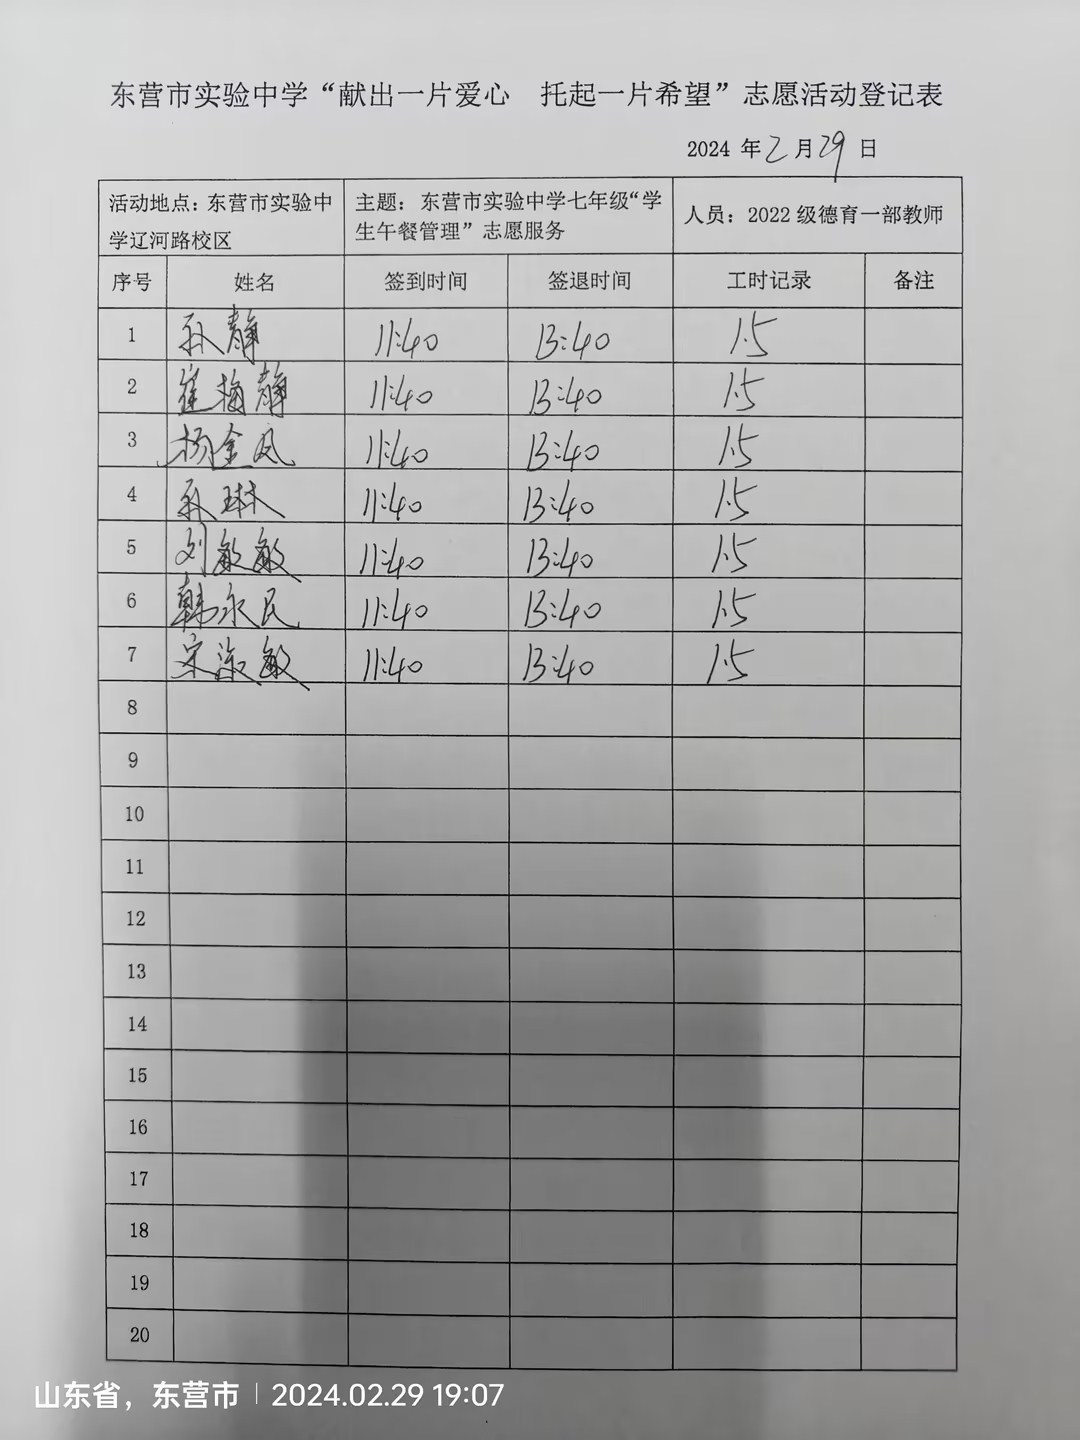 东营市实验中学“献出一片爱心 托起一片希望”志愿活动登记表
2024 年 2 月 29 日
活动地点：东营市实验中学辽河路校区 主题：东营市实验中学七年级“学生午餐管理”志愿服务 人员：2022 级德育一部教师
序号 姓名 签到时间 签退时间 工时记录 备注
1 孙静 11:40 13:40 1.5
2 崔梅静 11:40 13:40 1.5
3 杨金凤 11:40 13:40 1.5
4 孙琳 11:40 13:40 1.5
5 刘敏敏 11:40 13:40 1.5
6 韩永民 11:40 13:40 1.5
7 宋淑敏 11:40 13:40 1.5
8
9
10
11
12
13
14
15
16
17
18
19
20
山东省，东营市 | 2024.02.29 19:07